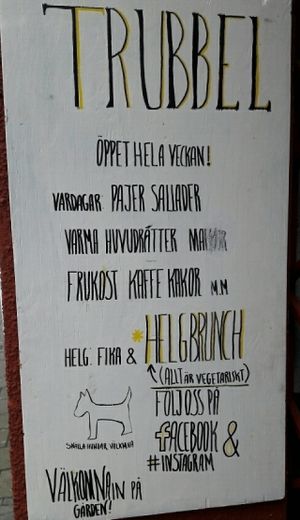 TRUBBEL
ÖPPET HELA VECKAN!
VARDAGAR: PAJER SALLADER
VARMA HUVUDRÄTTER
FRUKOST KAFFE KAKOR M.M
HELG: FIKA & *HELGBRUNCH
(ALLT ÄR VEGETARISKT)
FÖLJ OSS PÅ
FACEBOOK &
# INSTAGRAM
SNÄLLA HUNDAR VÄLKOMNA
VÄLKOMNA IN PÅ
GÅRDEN!